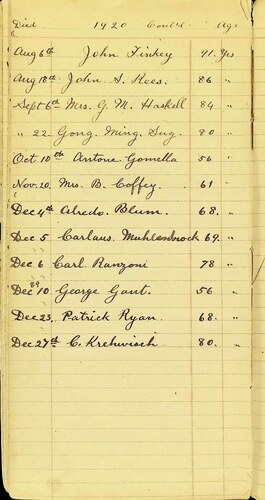 Died 1920 Cont'd Age
Aug 6th John Finkey 41. Yrs
Aug 18th John S. Rees. 86 "
Sept 6th Mrs. G. M. Haskell 84 "
" 22. Gong. Ming. Sug. 80 "
Oct 10th Antone Gomella 56 "
Nov. 20. Mrs. B. Coffey. 61 "
Dec 4th Alredo. Blum. 68. "
Dec 5 Carlaus. Muhlenbrock 69. "
Dec 6 Carl Ranzoni 78 "
Dec 10 George Gant. 56 "
Dec 23. Patrick Ryan 68. "
Dec 27th C. Krehwisch 80. "